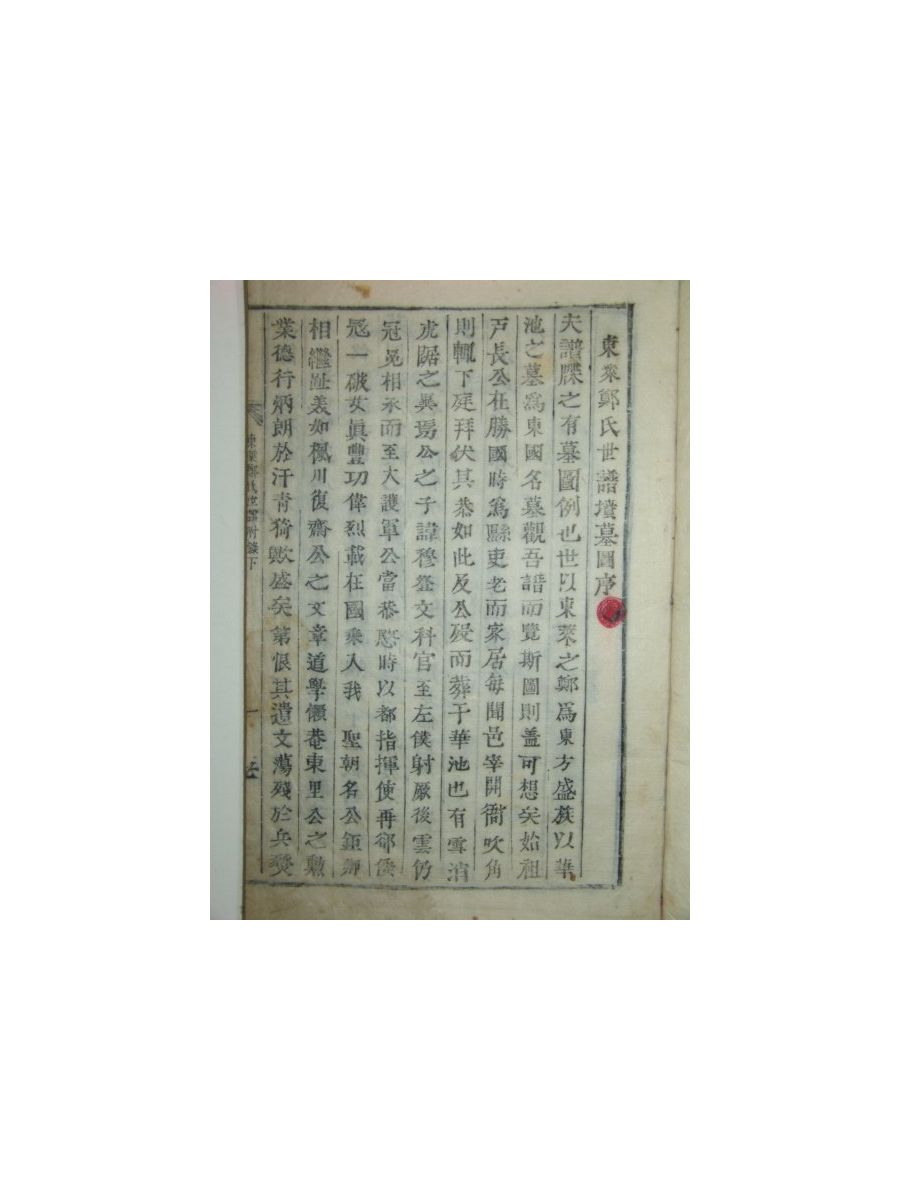 東萊鄭氏世譜墳墓圖序
夫譜牒之有墓圖例也世以東萊之鄭爲東方盛族以華
池之墓爲東國名墓觀吾譜而覽斯圖則盖可想矣始祖
戶長公在勝國時爲縣吏老而家居每聞邑宰開衙吹角
則輒下庭拜伏其恭如此及公殁而葬于華池也有雪消
虎踞之異焉公之子諱穆登文科官至左僕射厥後雲仍
冠冕相承而至大護軍公當恭愍時以都指揮使再郤倭
冦一破女眞豐功偉烈載在國乘入我 聖朝名公鉅卿
相繼趾美如楓川復齋公之文章道學懶菴東里公之勳
業德行炳朗於汗青猗歟盛矣第恨其遺文蕩殘於兵燹
東萊鄭氏世譜附錄下 一